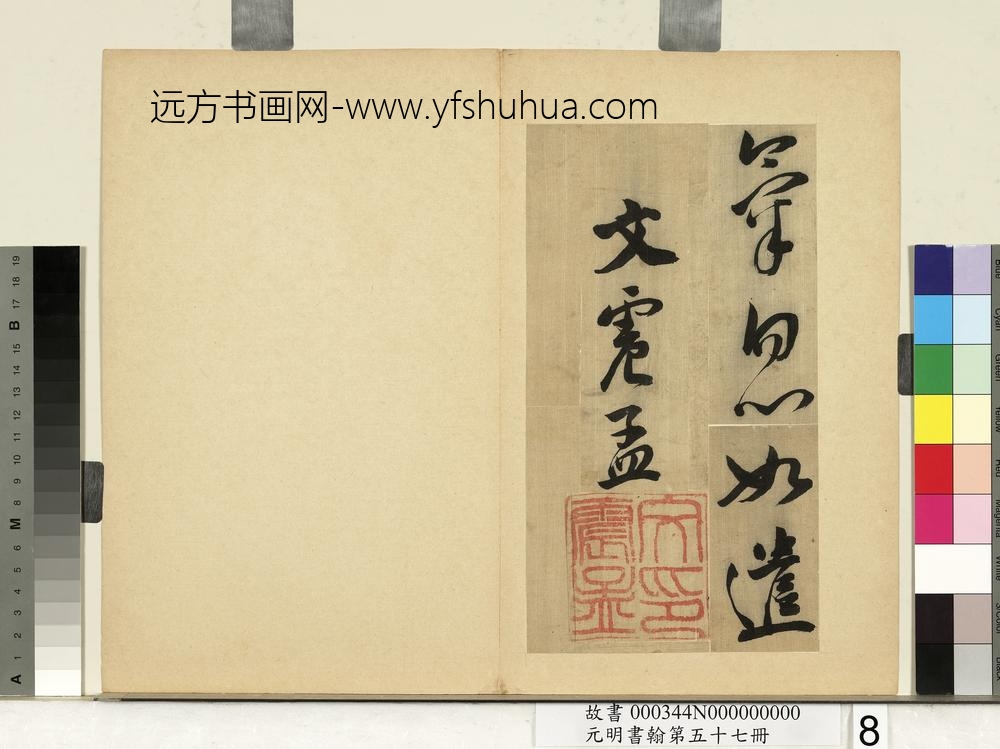 远方书画网-www.yfshuhua.com
氣息如遣
文震孟
文印
震孟
故書 000344N000000000
元明書翰第五十七冊
8
19
18
17
B
16
15
14
13
12
11
10
9
8
M
7
6
5
4
3
2
1
A
Blue
Cyan
Green
Yellow
Red
Magenta
White
3/Color
Black